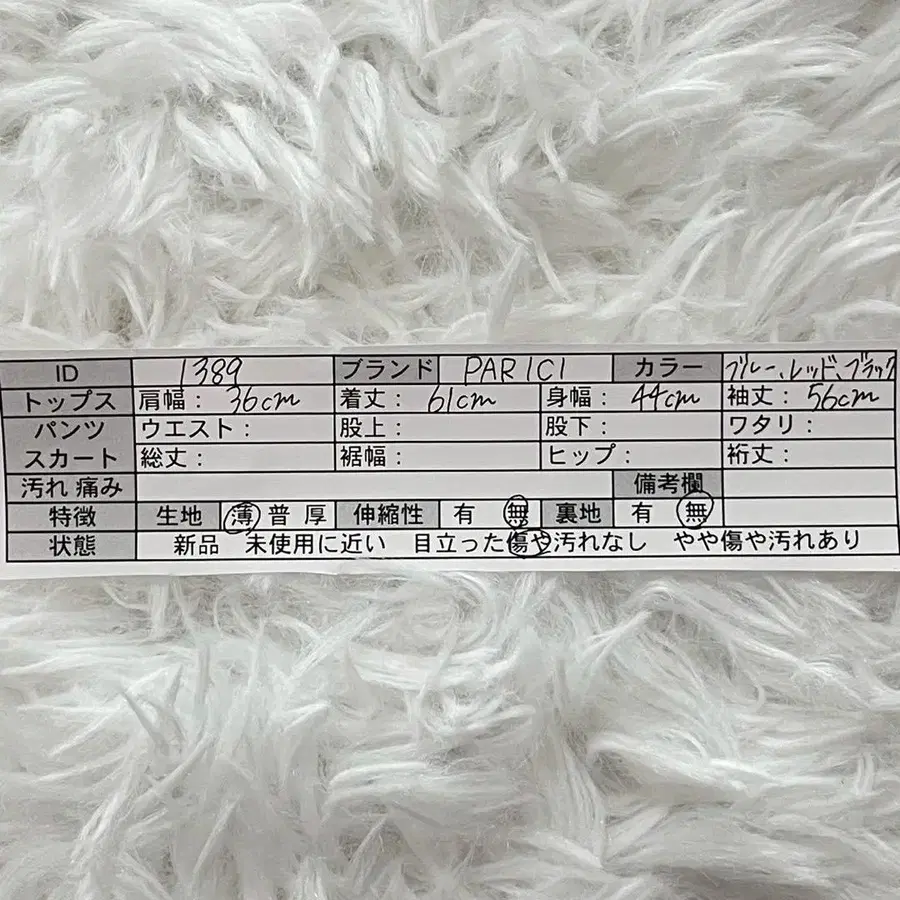 ID 1389 ブランド PARICI カラー ブルー、レッド、ブラック
トップス 肩幅： 36cm 着丈： 61cm 身幅： 44cm 袖丈： 56cm
パンツ ウエスト： 股上： 股下： ワタリ：
スカート 総丈： 裾幅： ヒップ： 裄丈：
汚れ 痛み 備考欄
特徴 生地 薄 普 厚 伸縮性 有 無 裏地 有 無
状態 新品 未使用に近い 目立った傷や汚れなし やや傷や汚れあり